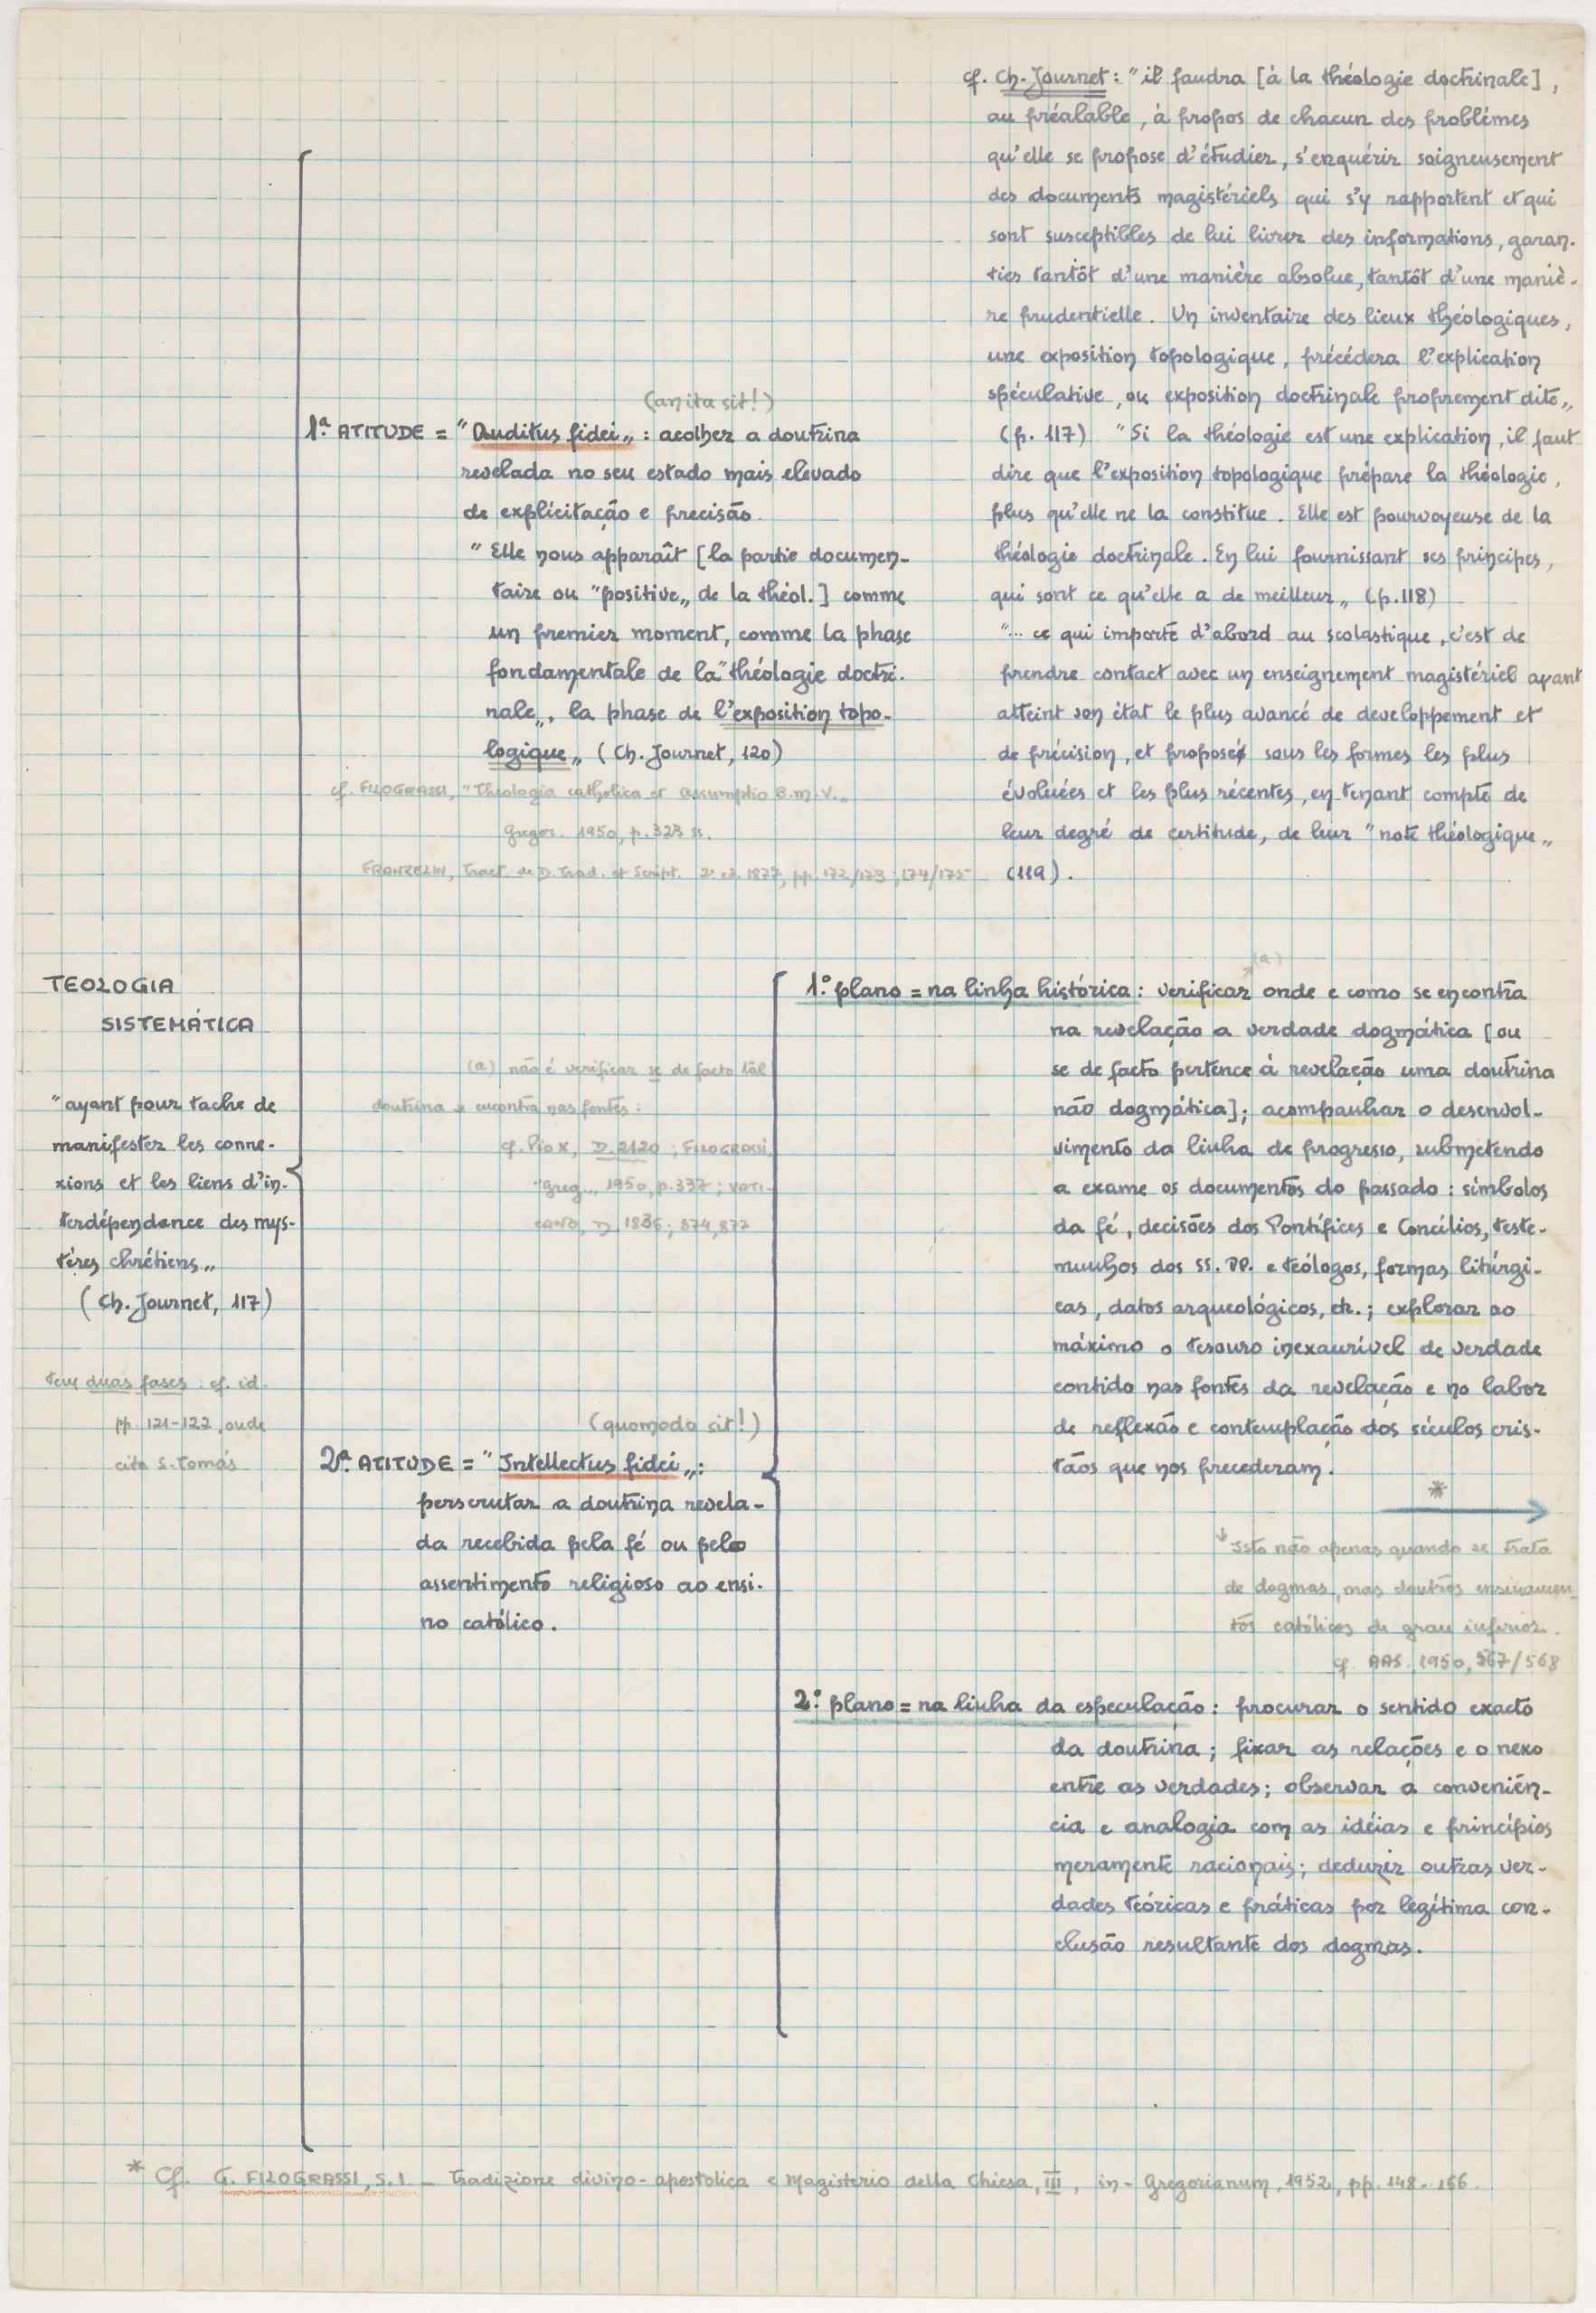 TEOLOGIA
SISTEMÁTICA
"ayant pour tache de
manifester les conne-
xions et les liens d'in-
terdépendance des mys-
tères chrétiens„
(Ch. Journet, 117)
tem duas fases: cf. id.
pp. 121-122, onde
cita S. Tomás
(an ita sit!)
1ª ATITUDE = "Auditus fidei„: acolher a doutrina
revelada no seu estado mais elevado
de explicitação e precisão.
"Elle nous apparaît [la partie documen-
taire ou "positive„ de la théol.] comme
un premier moment, comme la phase
fondamentale de la "théologie doctri-
nale„, la phase de l'exposition topo-
logique„ (Ch. Journet, 120)
cf. FILOGRASSI, "Theologia catholica et Assumptio B.M.V.„
Gregor. 1950, p. 323 ss.
FRANZELIN, Tract. de D. Trad. et Script. 2ª ed. 1877, pp. 172/173, 174/175
cf. Ch. Journet: "il faudra [à la théologie doctrinale],
au préalable, à propos de chacun des problèmes
qu'elle se propose d'étudier, s'enquérir soigneusement
des documents magistériels qui s'y rapportent et qui
sont susceptibles de lui livrer des informations, garan-
ties tantôt d'une manière absolue, tantôt d'une maniè-
re prudentielle. Un inventaire des lieux théologiques,
une exposition topologique, précédera l'explication
spéculative, ou exposition doctrinale proprement dite„
(p. 117) "Si la théologie est une explication, il faut
dire que l'exposition topologique prépare la théologie,
plus qu'elle ne la constitue. Elle est pourvoyeuse de la
théologie doctrinale. En lui fournissant ses principes,
qui sont ce qu'elle a de meilleur„ (p. 118)
"... ce qui importe d'abord au scolastique, c'est de
prendre contact avec un enseignement magistériel ayant
atteint son état le plus avancé de developpement et
de précision, et proposé sous les formes les plus
évoluées et les plus récentes, en tenant compte de
leur degré de certitude, de leur "note théologique„
(119).
(quomodo sit!)
2ª ATITUDE = "Intellectus fidei„:
perscrutar a doutrina revela-
da recebida pela fé ou pelo
assentimento religioso ao ensi-
no católico.
(a) não é verificar se de facto tal
doutrina se encontra nas fontes:
cf. Pio X, D. 2120; FILOGRASSI,
"Greg.„ 1950, p. 337; VATI-
CANO, D. 1836; 874, 877
(a)
1º plano = na linha histórica: verificar onde e como se encontra
na revelação a verdade dogmática [ou
se de facto pertence à revelação uma doutrina
não dogmática]; acompanhar o desenvol-
vimento da linha de progresso, submetendo
a exame os documentos do passado: símbolos
da fé, decisões dos Pontífices e Concílios, teste-
munhos dos SS. PP. e teólogos, formas litúrgi-
cas, datos arqueológicos, etc.; explorar ao
máximo o tesouro inexaurível de verdade
contido nas fontes da revelação e no labor
de reflexão e contemplação dos séculos cris-
tãos que nos precederam.
*
Isto não apenas quando se trata
de dogmas, mas doutros ensinamen-
tos católicos de grau inferior.
cf. AAS. 1950, 567/568
2º plano = na linha da especulação: procurar o sentido exacto
da doutrina; fixar as relações e o nexo
entre as verdades; observar a conveniên-
cia e analogia com as idéias e princípios
meramente racionais; deduzir outras ver-
dades teóricas e práticas por legítima con-
clusão resultante dos dogmas.
* Cf. G. FILOGRASSI, S.I. _ Tradizione divino-apostolica e Magisterio della Chiesa, III, in- Gregorianum, 1952, pp. 148-166.